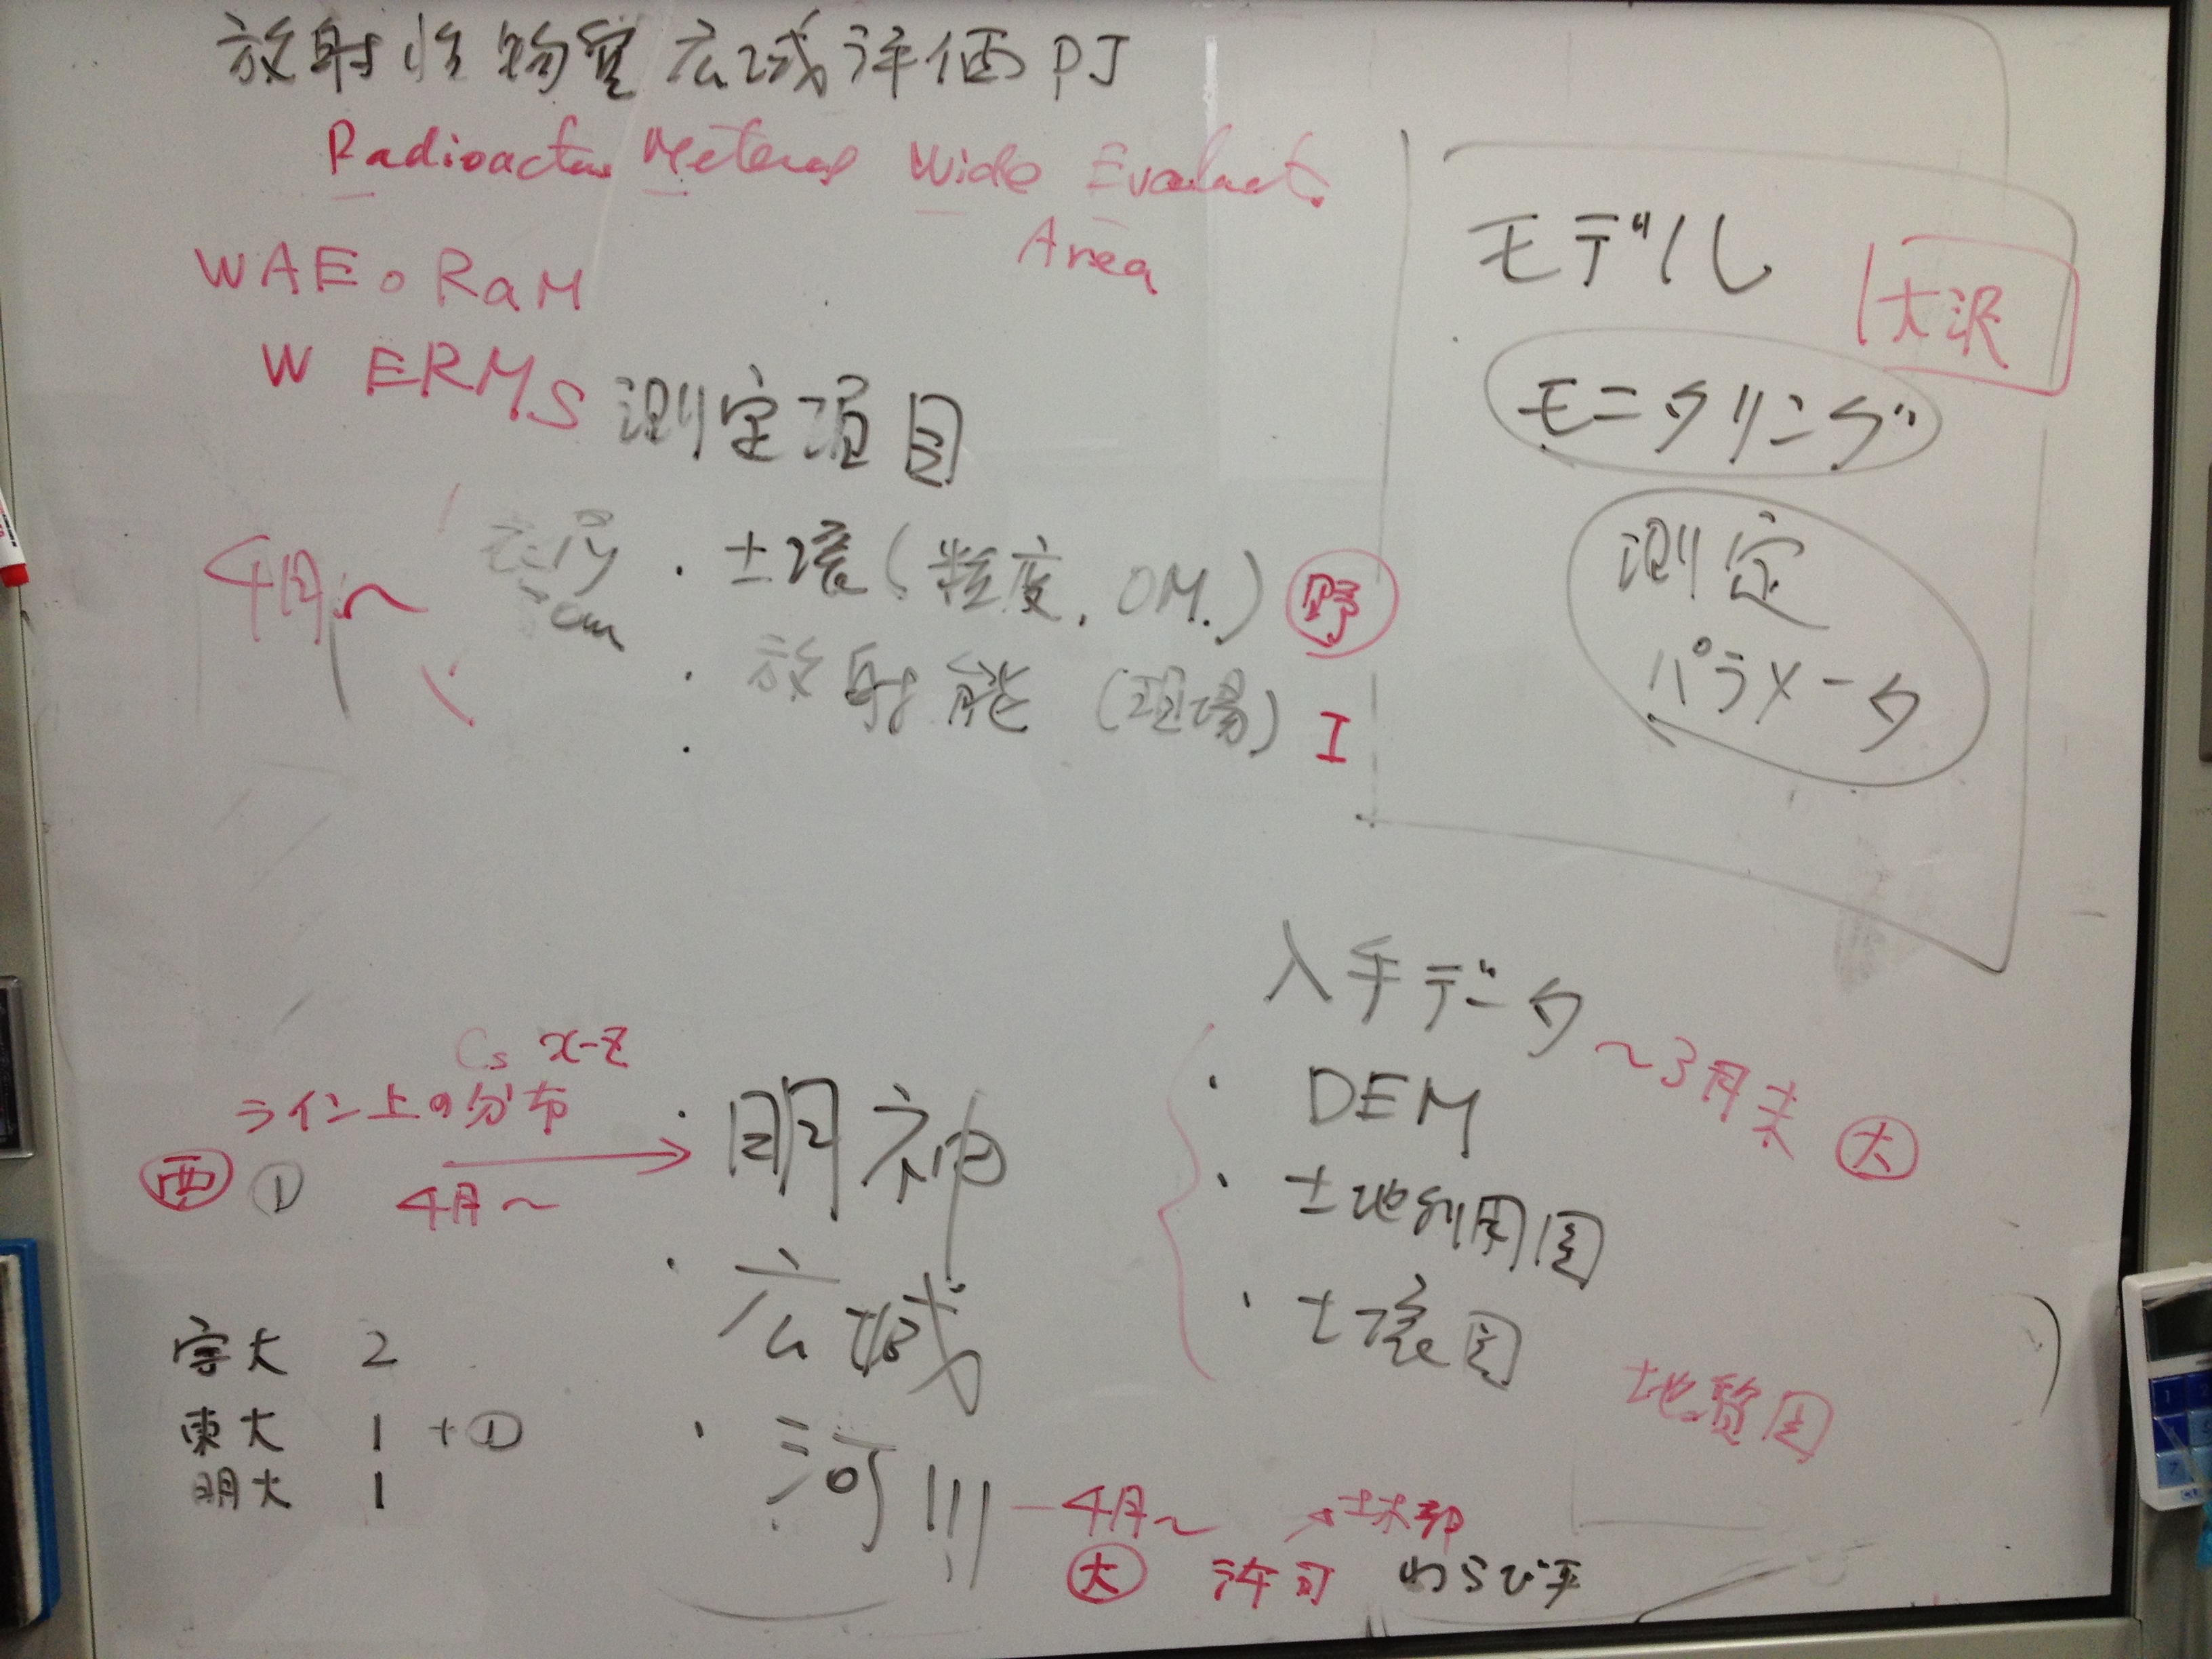 放射性物質広域評価PJ
Radioactive Materas Wide Evaluat.
Area
WAE。RaM
W ERMs
測定項目
4月〜
表層
cm
・土壌(粒度, OM.) 野
・放射能 (現場) I
・
モデル
大沢
モニタリング
測定
パラメータ
入手データ
〜3月末 大
・DEM
・土地利用図
・土壌図
地質図
Cs x-z
ライン上の分布
西 ①
4月〜
・明神
・広域
・河川
4月〜
大 許可
土木部
わらび平
宇大 2
東大 1 + ①
明大 1